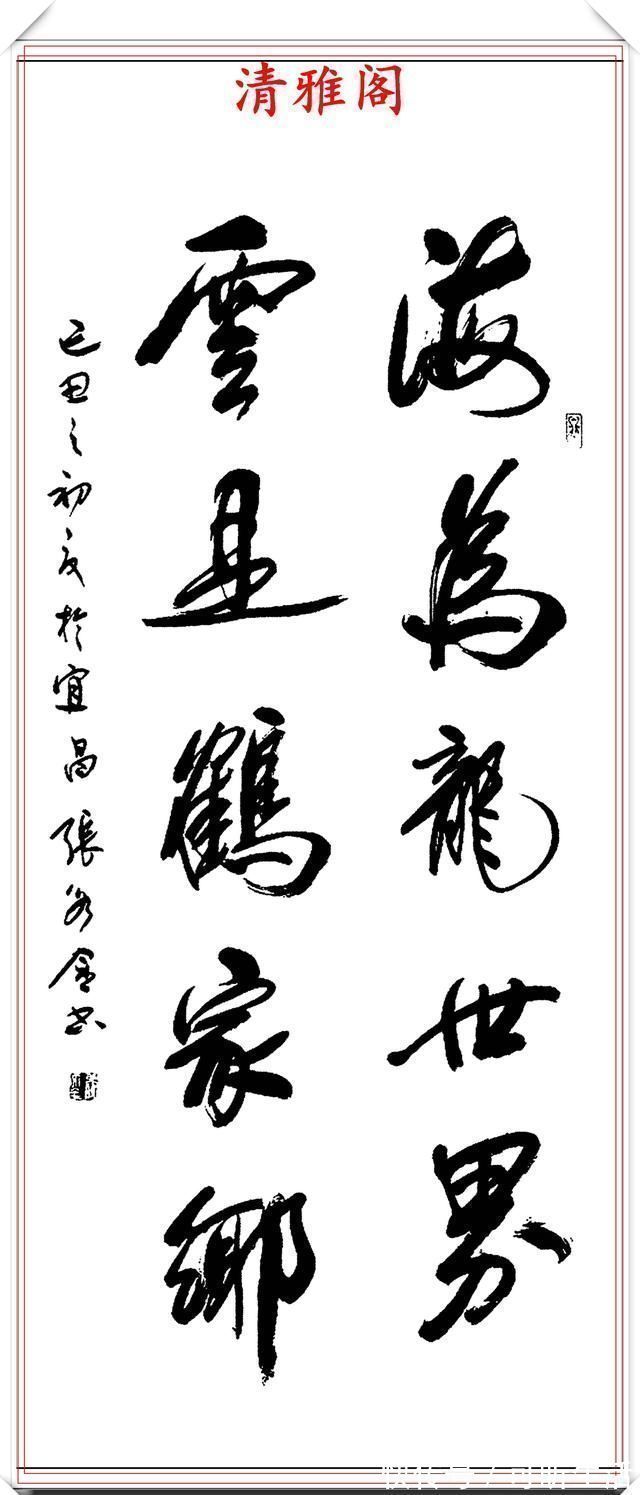 清雅阁
海為龍世界
雲是鶴家鄉
己丑之初夏於宜昌張秀金书